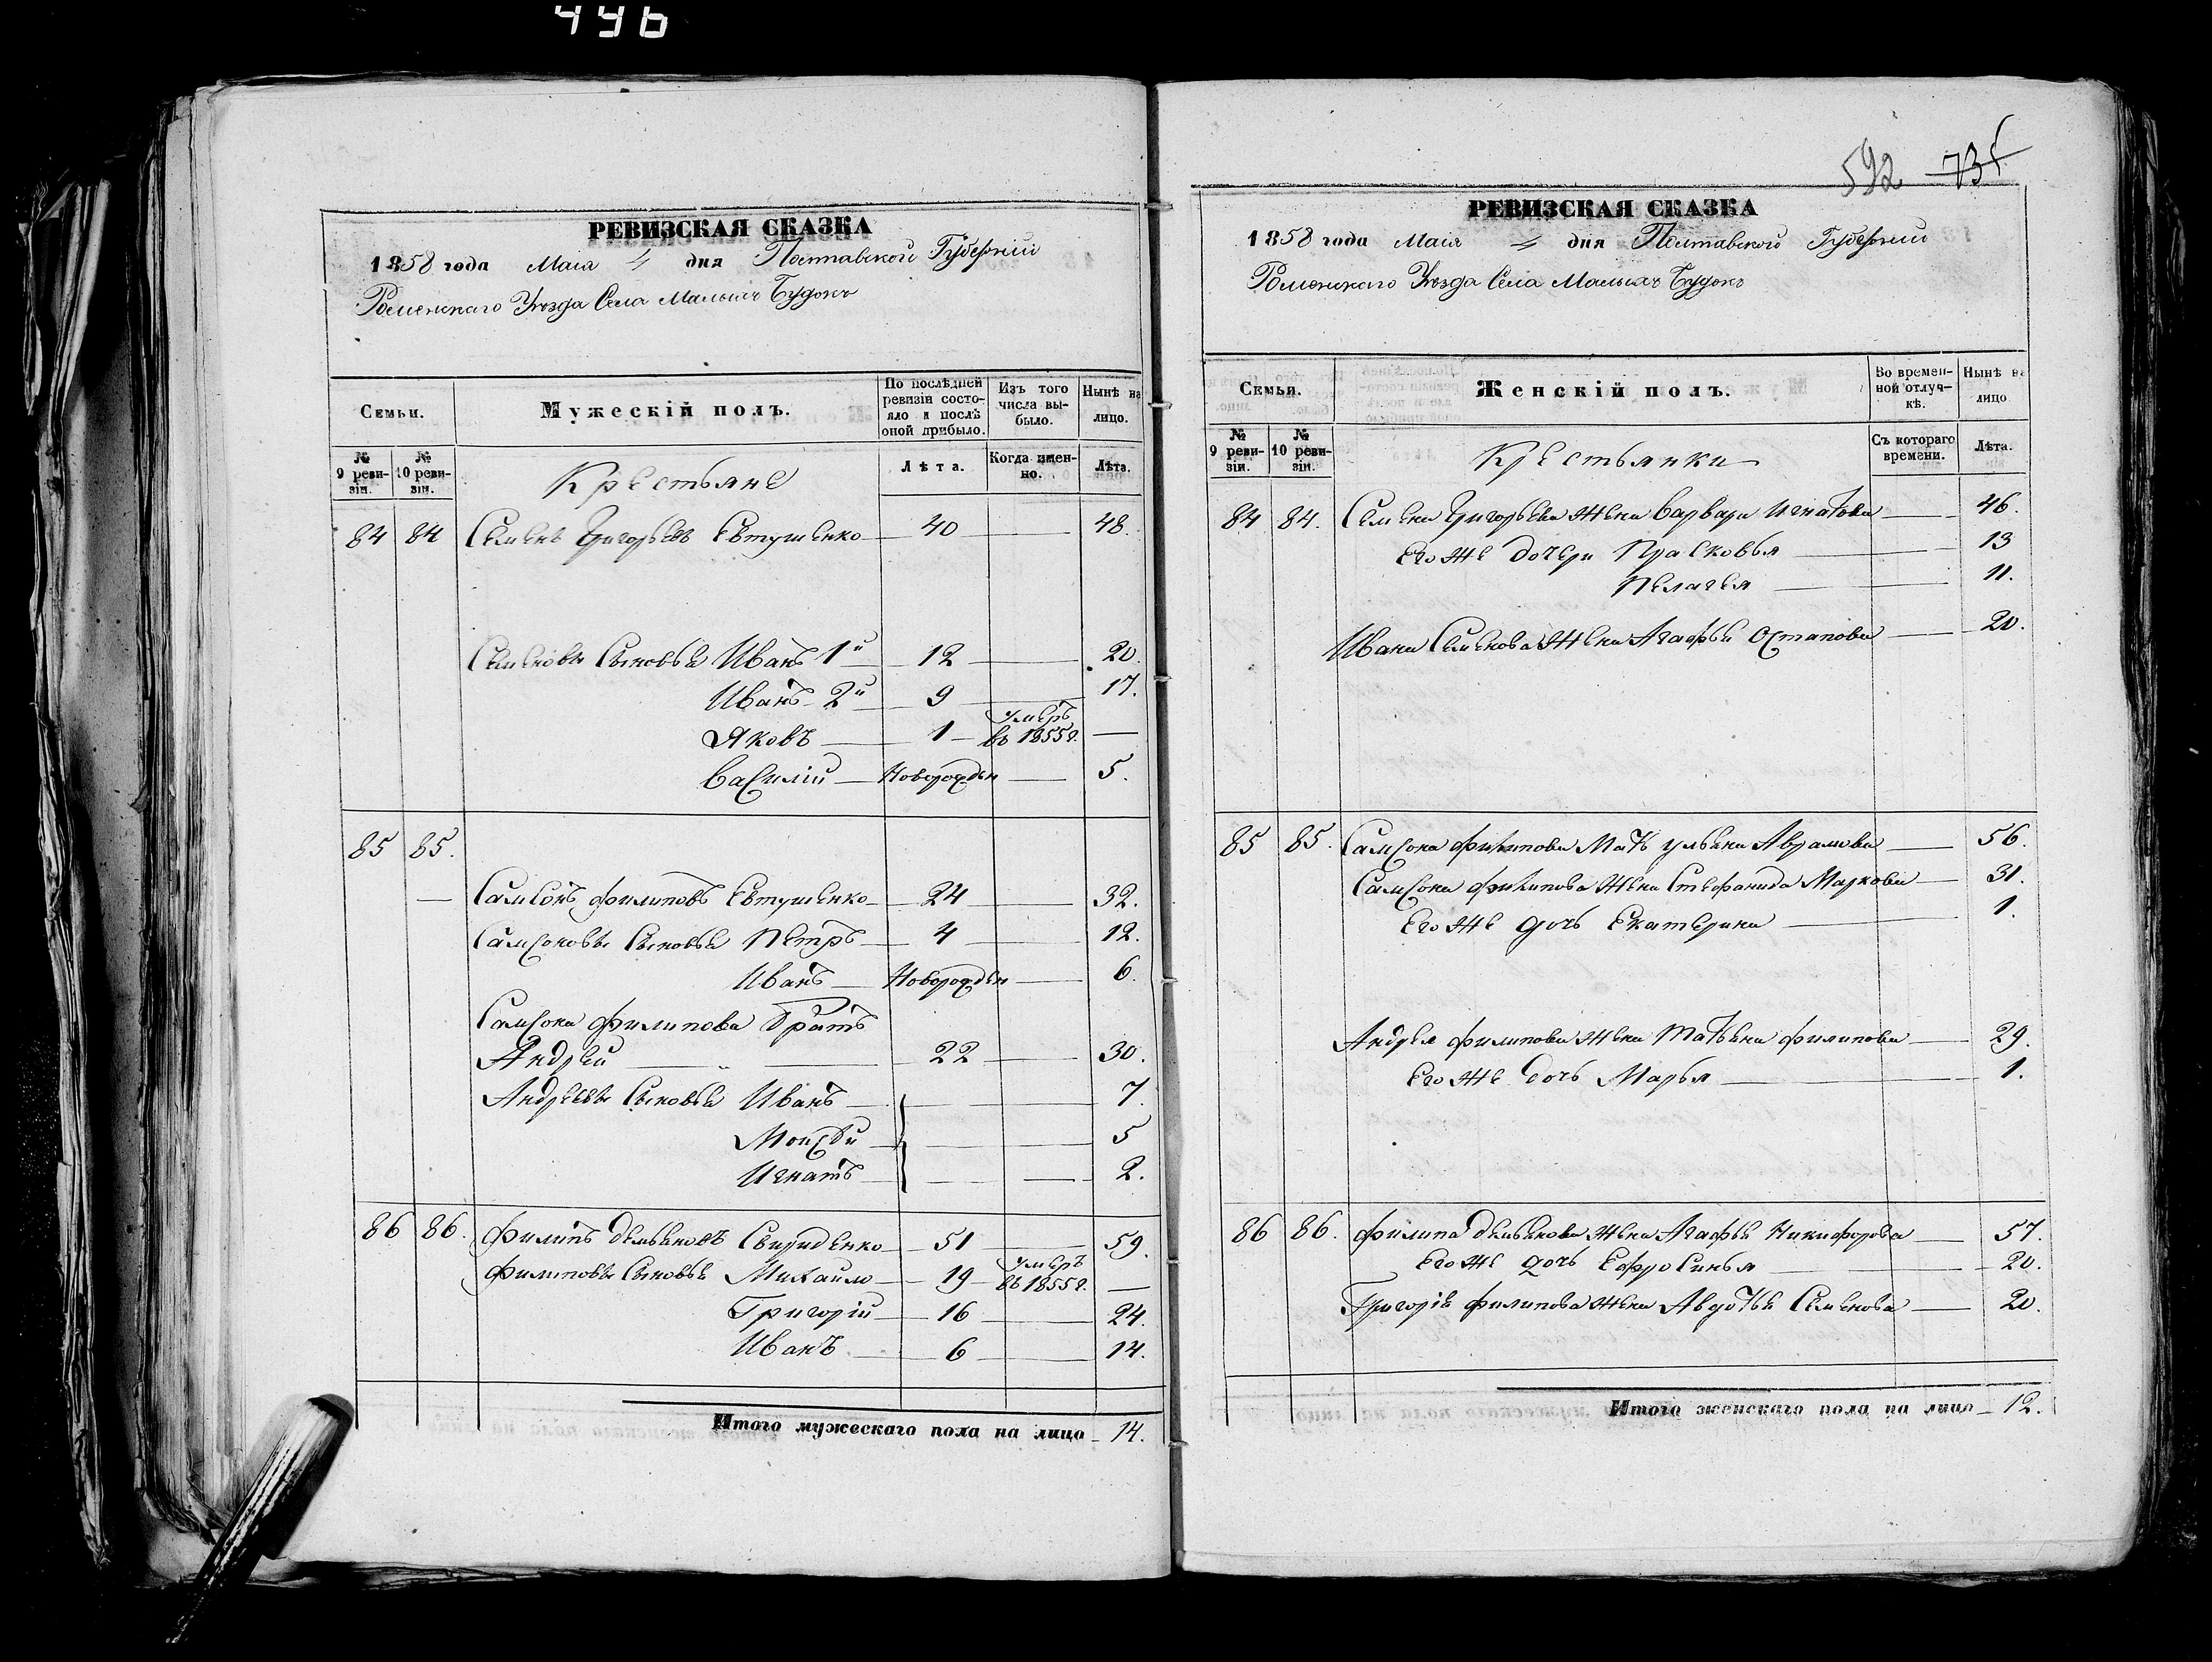 446
РЕВИЗСКАЯ СКАЗКА
1858 года Маія 4 дня Полтавской Губерніи
Роменскаго Уѣзда Села Малыхъ Будокъ
Семьи.
Мужескій полъ.
По послѣдней ревизіи состояло и послѣ оной прибыло.
Изъ того числа выбыло.
Нынѣ на лицо.
№ 9 ревизіи.
№ 10 ревизіи.
Крестьяне
Лѣта.
Когда именно.
Лѣта.
84 84 Семенъ Григорьевъ Евтушенко 40 — 48.
Семеновы Сыновья Иванъ 1й 12 — 20.
Иванъ 2й 9 — 17.
Яковъ — 1 — умеръ въ 1855г. —
Василій — Новорожден — 5.
85 85.
— Самсонъ Филиповъ Евтушенко — 24 — 32.
Самсоновы Сыновья Петръ — 4 — 12.
Иванъ — Новорожден — 6.
Самсона Филипова братъ
Андрей — „ — 22 — 30.
Андреевы Сыновья Иванъ — 7.
Моисей — 5
Игнатъ — 2.
86 86. Филипъ Демьяновъ Свириденко — 51 — 59.
Филиповы Сыновья Михайло — 19 — умеръ въ 1855г. —
Григорій — 16 — 24.
Иванъ — 6 — 14.
Итого мужескаго пола на лицо — 14.
592 731
РЕВИЗСКАЯ СКАЗКА
1858 года Маія 4 дня Полтавской Губерніи
Роменскаго Уѣзда Села Малыхъ Будокъ
Семьи.
Женскій полъ.
Во временной отлучкѣ.
Нынѣ на лицо
№ 9 ревизіи.
№ 10 ревизіи.
Крестьянки
Съ котораго времени.
Лѣта.
84 84. Семена Григорьева жена Варвара Игнатова — 46.
Его же дочери Прасковья — 13
Пелагея — 11.
Ивана Семенова жена Агафья Остапова — 20.
85 85. Самсона Филипова Мать Ульяна Аврамова — 56.
Самсона Филипова жена Стефанида Маркова — 31.
Его же дочь Екатерина — 1.
Андрея Филипова жена Татьяна Филипова — 29.
Его же дочь Марья — 1.
86 86. Филипа Демьянова жена Агафья Никифорова — 57.
Его же дочь Ефросинья — 20.
Григорія Филипова жена Авдотья Семенова — 20.
Итого женскаго пола на лицо — 12.